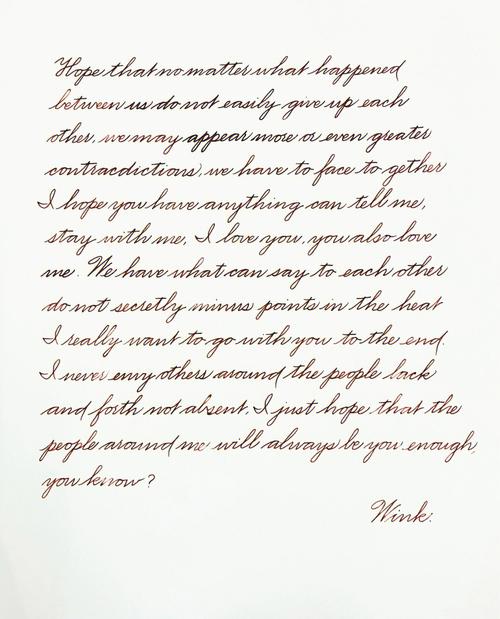 Hope that no matter what happened
between us do not easily give up each
other, we may appear more or even greater
contracdictions, we have to face to gether
I hope you have anything can tell me,
stay with me, I love you, you also love
me. We have what can say to each other
do not secretly minus points in the heat
I really want to go with you to the end.
I never envy others around the people back
and forth not absent, I just hope that the
people around me will always be you enough,
you know?
Wink.